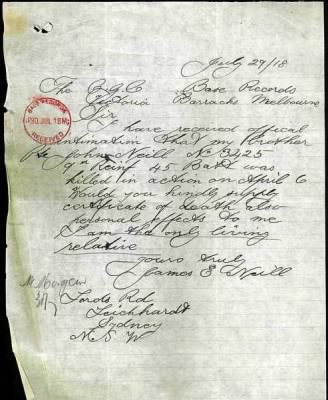 July 29/18
The O.I.C Base Records
Victoria Barracks Melbourne
Sir
I have received offical
intimation that my Brother
Pte John Neill No 3425
9th Reinf 45 Batt was
killed in action on April 6
Would you kindly supply
certificate of death also
personal effects to me
I am the only living
relative
yours truly
James E Neill
Fords Rd
Leichhardt
Sydney
N S W
BASE RECORDS
30 JUL 1918
RECEIVED